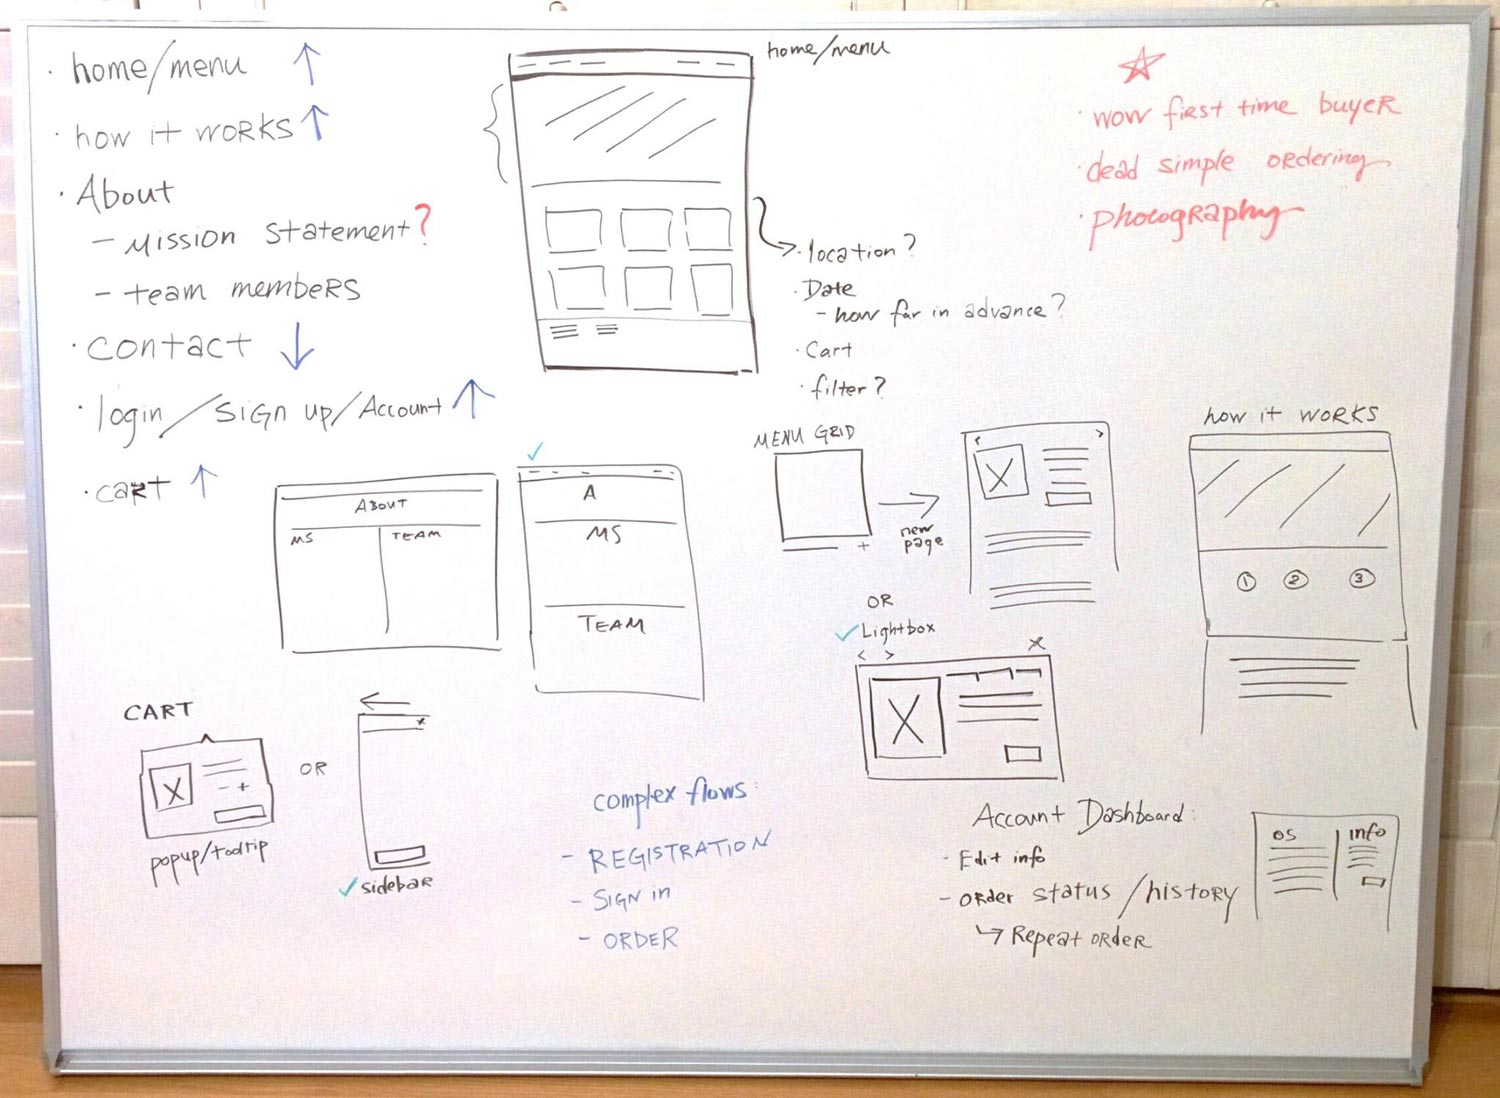 · home/menu ↑
· how it works ↑
· About
- Mission Statement?
- team members
· contact ↓
· login/Sign up/Account ↑
· cart ↑
home/menu
· location?
· Date
- how far in advance?
· Cart
· filter?
☆
· wow first time buyer
· dead simple ordering
· photography
✓
ABOUT
MS TEAM
A
MS
TEAM
MENU GRID
+
→
new
page
< >
X
OR
✓ Lightbox
< > X
X
how it works
① ② ③
CART
X
- +
popup/tooltip
OR
←
x
✓ sidebar
complex flows:
- REGISTRATION
- SIGN in
- ORDER
Account Dashboard:
- Edit info
- order status/history
↳ Repeat order
OS info